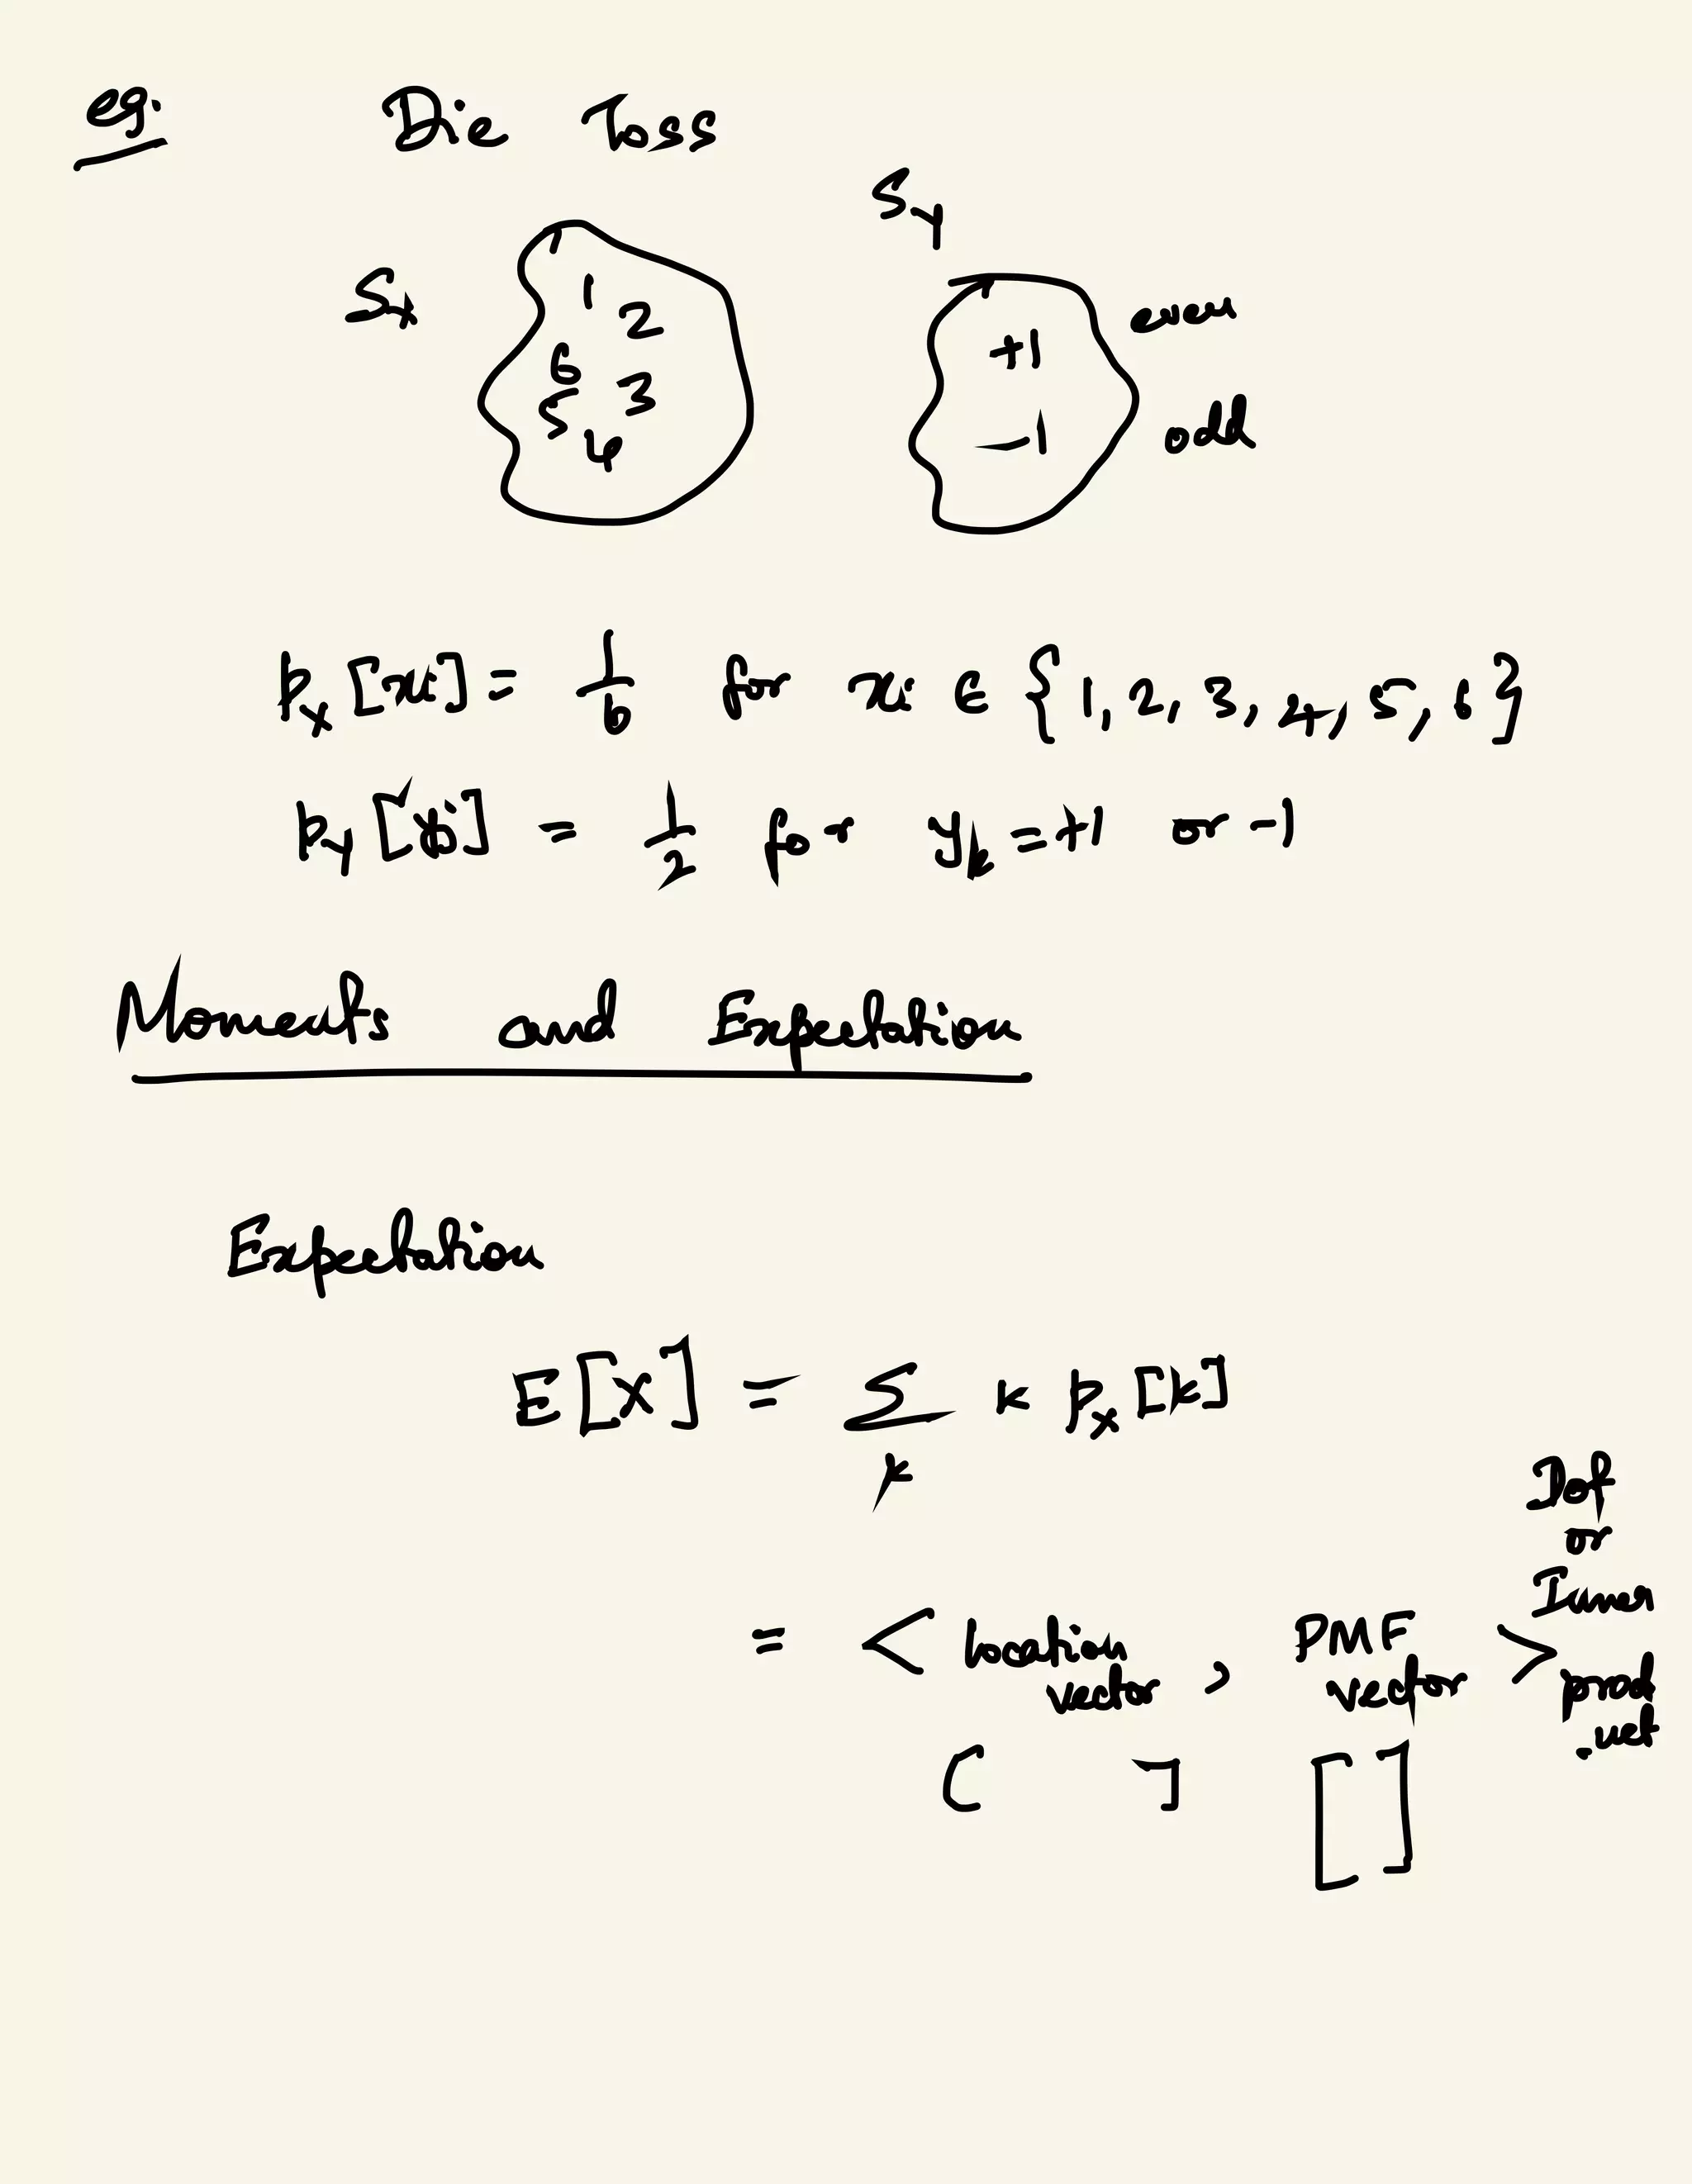 eg: Die Toss
S_Y
S_x
1
2
6
3
5
4
+1
-1
even
odd
p_x [x_i] = 1/6 for x_i ∈ {1, 2, 3, 4, 5, 6}
p_y [ ] = 1/2 for y_k = +1 or -1
Moments and Expectation
Expectation
E[X] = Σ_k k p_x [k]
= < location vector , PMF vector > Dot or Inner product
[ ] [ ]